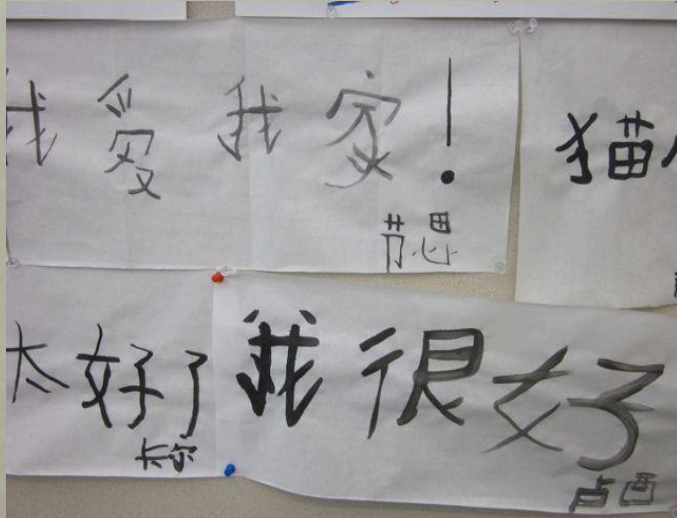 我爱我家!
节思
猫
太好了
卡尔
我很好
卢西